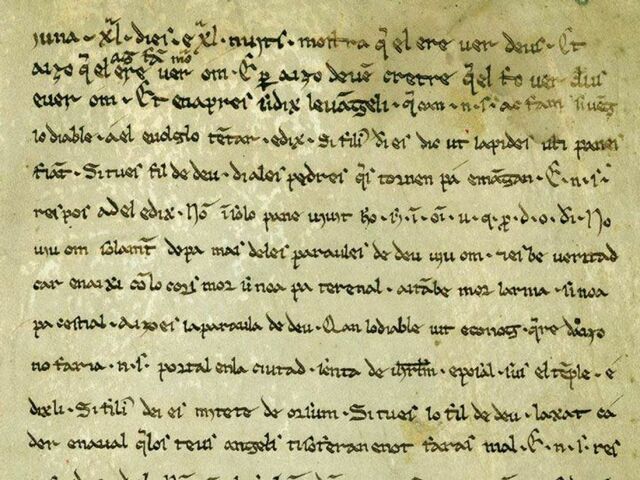 iuna · xl · dies · e xl · nuits · mostra q̄ el ere ver deus · Et
ag fā mō
aizo q̄ el ere ver om · E p̱ aizo deuē cretre q̄ el fo ver dius
e uer om · Et enapres si dix leuāgeli · q̄ can · n · s · ac fam si uēg
lo diable · a el e uolglo tētar · e dix · Si fili' di es dic ut lapides isti panes
fiāt · Si tu es fil de deu · di a les pedres q̄s tornen pa e māgan · E · n · s ·
respos ad el e dix · Nō ī solo pane uiuit ho · s · ī · oī · u · q · p̱ · d · o · dī · No
uiu om solam̄t de pa mas de les paraules de deu uiu om · 7 es be ueritad
car en aixi cō lo cors mor si no a pa terenal · aitābe mor larma · si no a
pa cestial · Aizo es la paraula de deu · Qan lo diable uit e conog · q̄ re daizo
no faria · n · s · portal en la ciutad · sēnta de · e poiàl · sus el tēple · e
dix li · Si fili' dei es mitete deorsum · Si tu es lo fil de deu · laxat ca
der en aual q̄ los teus angels ti sosteran e not faras mal · E · n · s · res